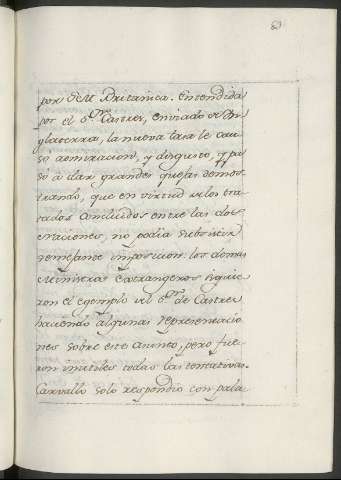 por S. M. Britanica. Entendida
por el Sor. Castres, enviado de In
glaterra, la nueva tasa le cau
só admiracion, y disgusto, y pa
só à dar grandes quejas demos
trando, que en virtud de los tra
tados concluidos entre las dos
naciones, no podia subsistir
semejante imposicion: los demas
Ministros extrangeros siguie
ron el egemplo del Sor. de Castres
haciendo algunas representacio
nes sobre este asunto, pero fue
ron inutiles todas las tentativas.
Carvallo solo respondio con pala